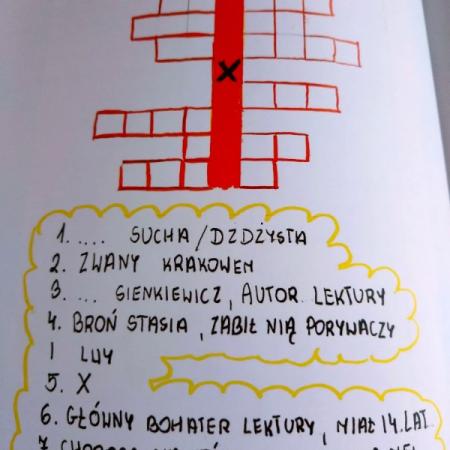 X
1. .... SUCHA / DŻDŻYSTA
2. ZWANY KRAKOWEM
3. ... SIENKIEWICZ, AUTOR LEKTURY
4. BROŃ STASIA, ZABIŁ NIĄ PORYWACZY
I LWY
5. X
6. GŁÓWNY BOHATER LEKTURY, MIAŁ 14 LAT
7.